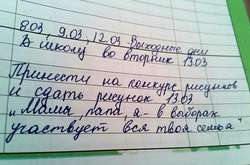 8.03, 9.03, 12.03 Выходные дни
В школу во вторник 13.03
Принести на конкурс рисунков
и сдать рисунок 13.03
„Мама, папа, я - в выборах
участвует вся твоя семья"